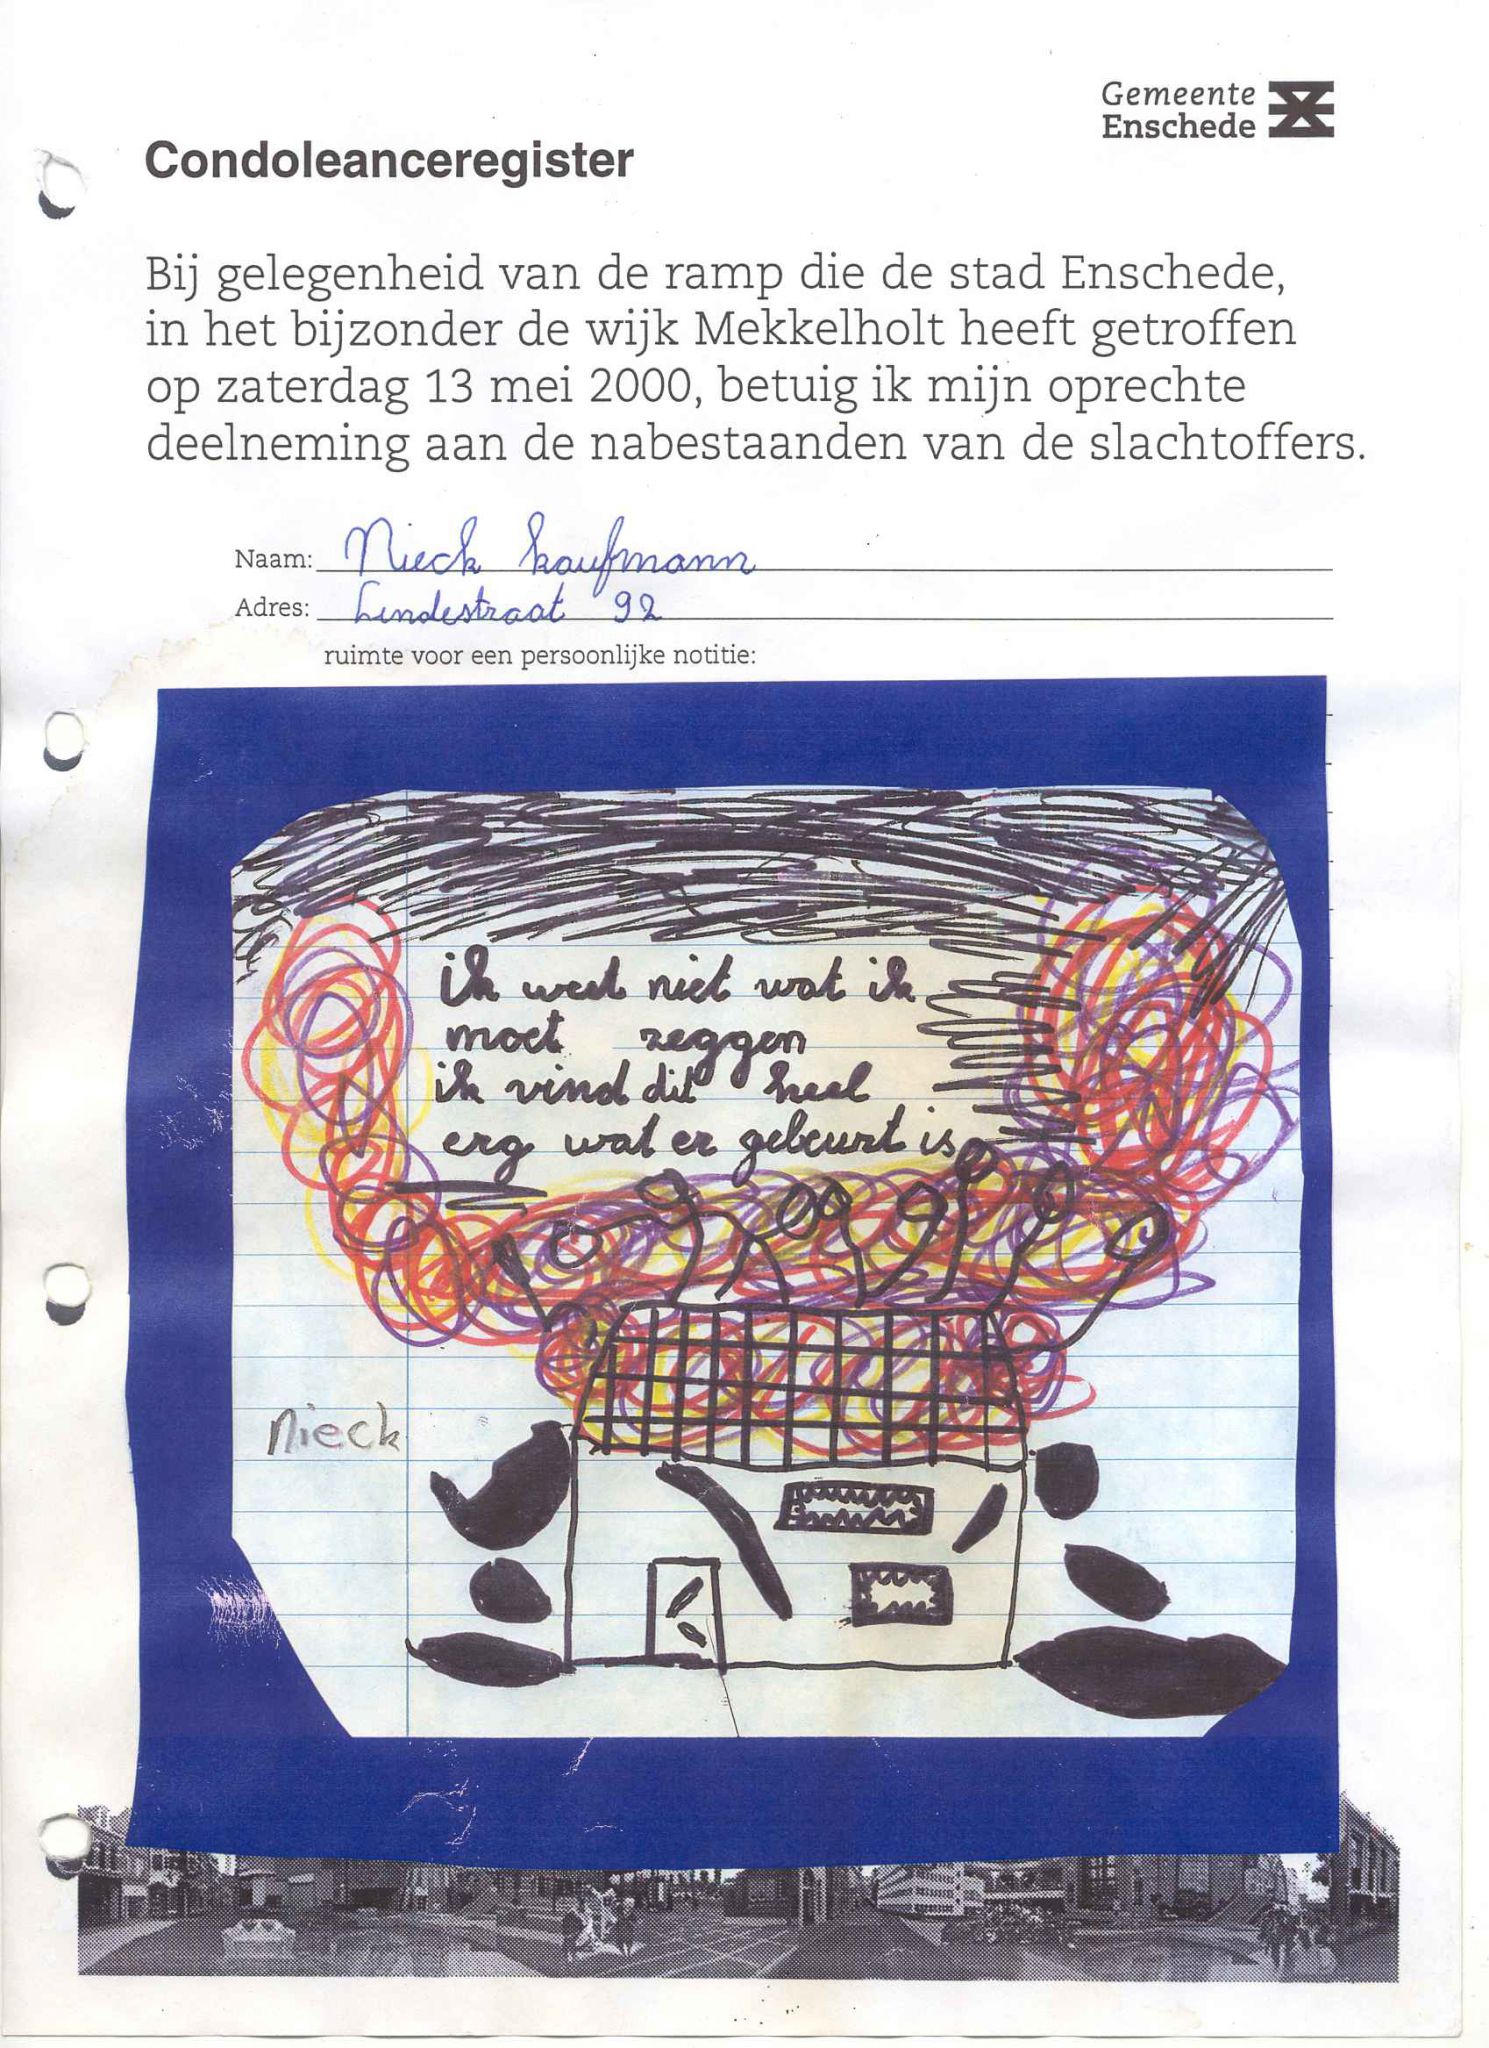 Gemeente
Enschede
Condoleanceregister
Bij gelegenheid van de ramp die de stad Enschede,
in het bijzonder de wijk Mekkelholt heeft getroffen
op zaterdag 13 mei 2000, betuig ik mijn oprechte
deelneming aan de nabestaanden van de slachtoffers.
Naam: Nieck Kaufmann
Adres: Lindestraat 92
ruimte voor een persoonlijke notitie:
ik weet niet wat ik
moet zeggen
ik vind dit heel
erg wat er gebeurt is
Nieck